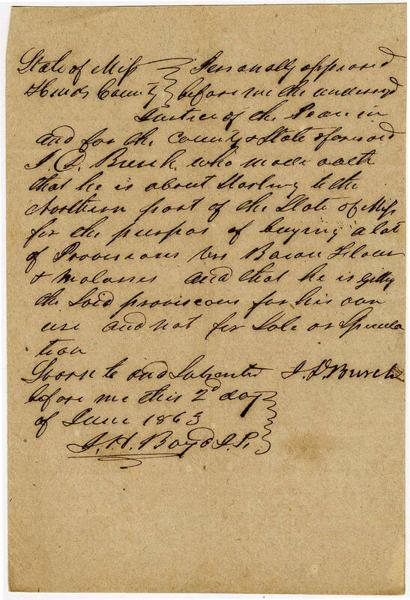 State of Miss } Personally appeared
Hinds County } before me the undersigd
Justice of the Peace in
and for the County & State aforesaid
J. D. Burch who made oath
that he is about Starting to the
Northern part of the State of Miss
for the purpos of buying a lot
of Provisions viz Bacon Flour
& Molasses and that he is getting
the Said provisions for his own
use and not for Sale or Specula
tion
Sworn to and Subscribed J. D. Burch
before me this 2d day
of June 1863
J. H. Boyd J.P.